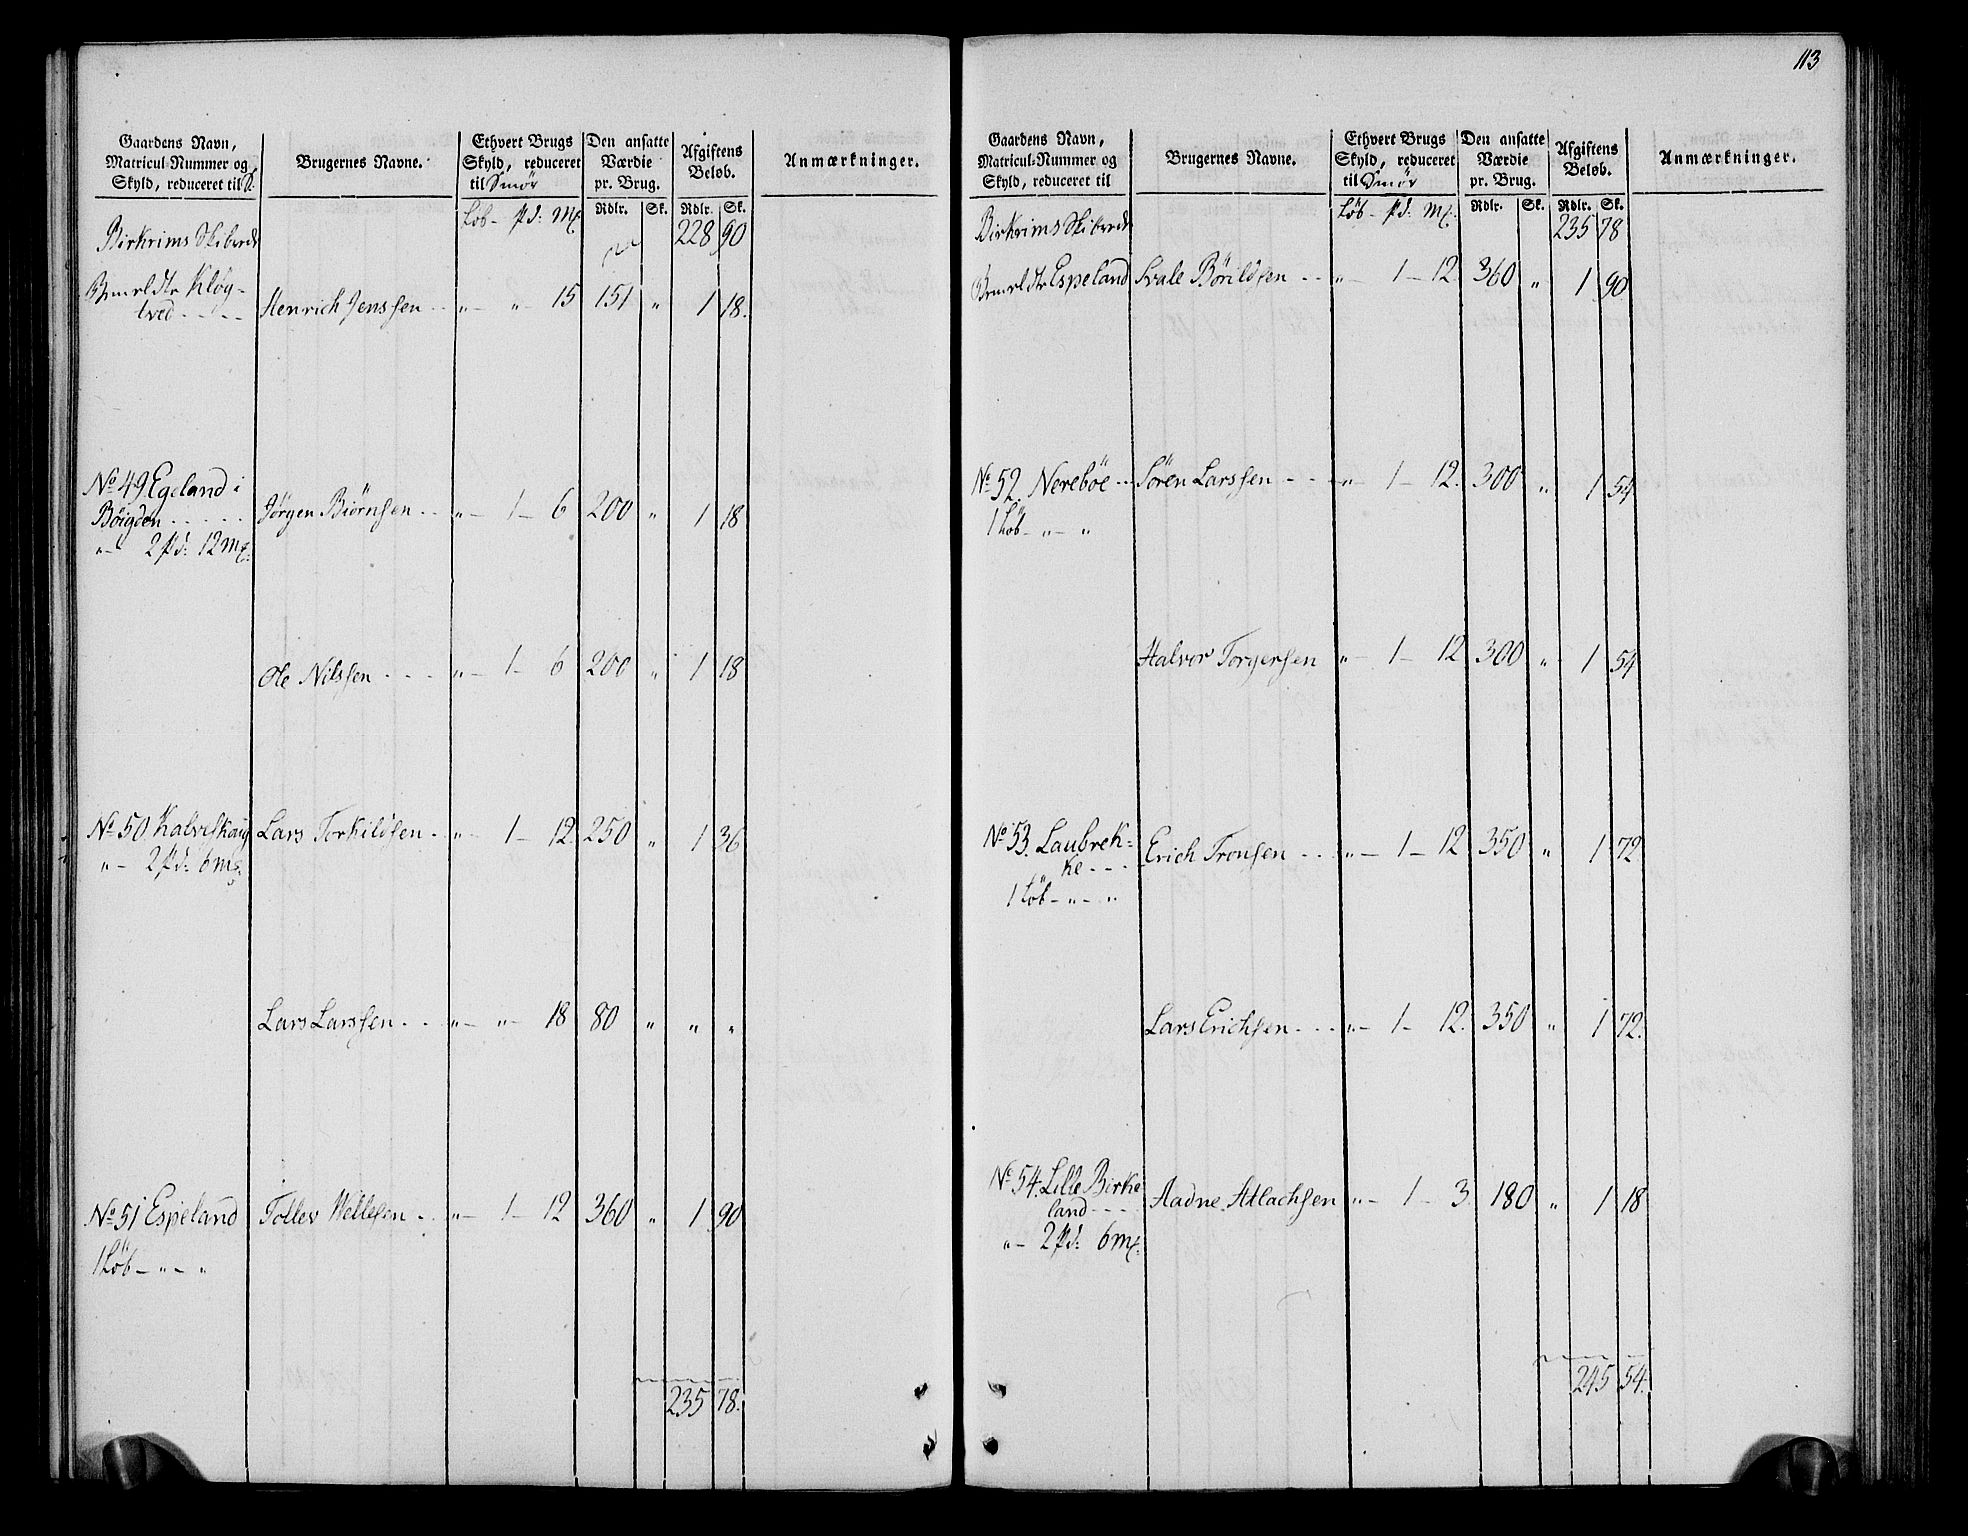 Gaardens Navn, Matricul-Nummer og Skyld, reduceret til S. | Brugernes Navne. | Ethvert Brugs Skyld, reduceret til Smör | Den ansatte Værdie pr. Brug. | Afgiftens Beløb. | Anmærkninger.
Löb - Pd: Mk | Rdlr. | Sk. | Rdlr. | Sk.
Birkrims Skibrede 228 90
Kløg-
tved - - - - Henrich Jenssen - - „ - „ - 15 151 „ 1 18.
No 49. Egeland i
Böigden - - - - - Jörgen Biörnsen - - „ - 1 - 6 200 „ 1 18
„ - 2 Pd: 12 Mk:
Ole Nilssen - - - - „ - 1 - 6 200 „ 1 18
No 50 Kalveskaug Lars Torkildsen - - „ - 1 - 12. 250 „ 1 36
„ - 2 Pd: 6 Mk:
Lars Larssen - - - „ - „ - 18 80 „ „ „
No 51 Espeland Tollev Wellesen - - „ - 1 - 12 360 „ 1 90
1 Löb - „ - „
235 78.
113
Gaardens Navn, Matricul-Nummer og Skyld, reduceret til | Brugernes Navne. | Ethvert Brugs Skyld, reduceret til Smör | Den ansatte Værdie pr. Brug. | Afgiftens Beløb. | Anmærkninger.
Löb - Pd: Mk: | Rdlr. | Sk. | Rdlr. | Sk.
Birkrims Skibrede 235 78
Espeland Svale Börildsen - - „ - 1 - 12. 360 „ 1 90
No 52. Nereböe - - Sören Larssen - - - „ - 1 - 12. 300 „ 1 54
1 Löb - „ - „
Halvor Torgersen „ - 1 - 12 300 „ 1 54
No 53. Laubrek-
ke - - - Erich Tronsen - - - „ - 1 - 12 350 „ 1 72
1 Löb - „ - „
Lars Erichsen - - - „ - 1 - 12. 350 „ 1 72.
No 54. Lille Birke
land - - - Aadne Atlachsen „ - 1 - 3. 180 „ 1 18
„ - 2 Pd: 6 Mk:
245 54.